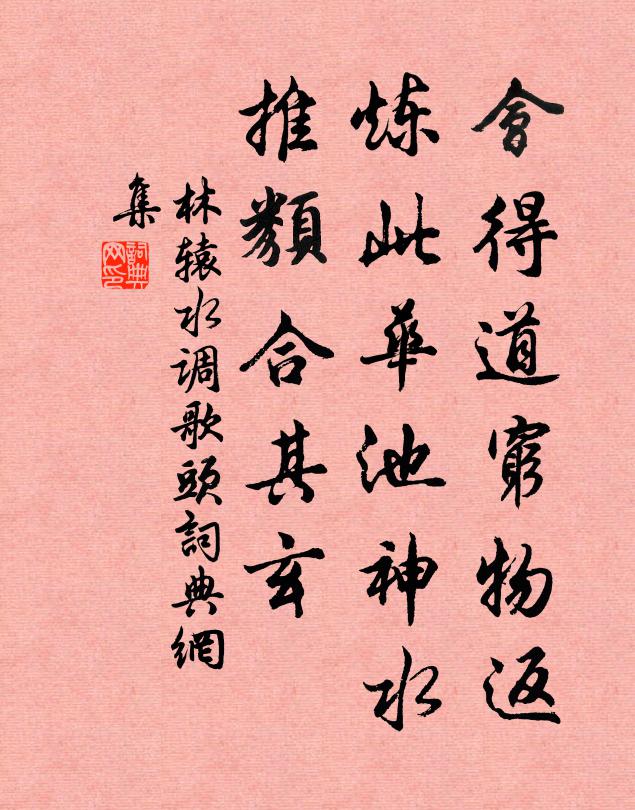 會得道窮物返
炼此華池神水
推類合其玄
林辕水调歌頭詞典網
集
詞典網印